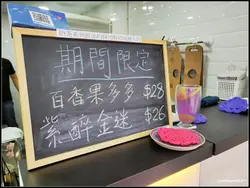 期間限定
百香果多多 $28
紫醉金迷 $26